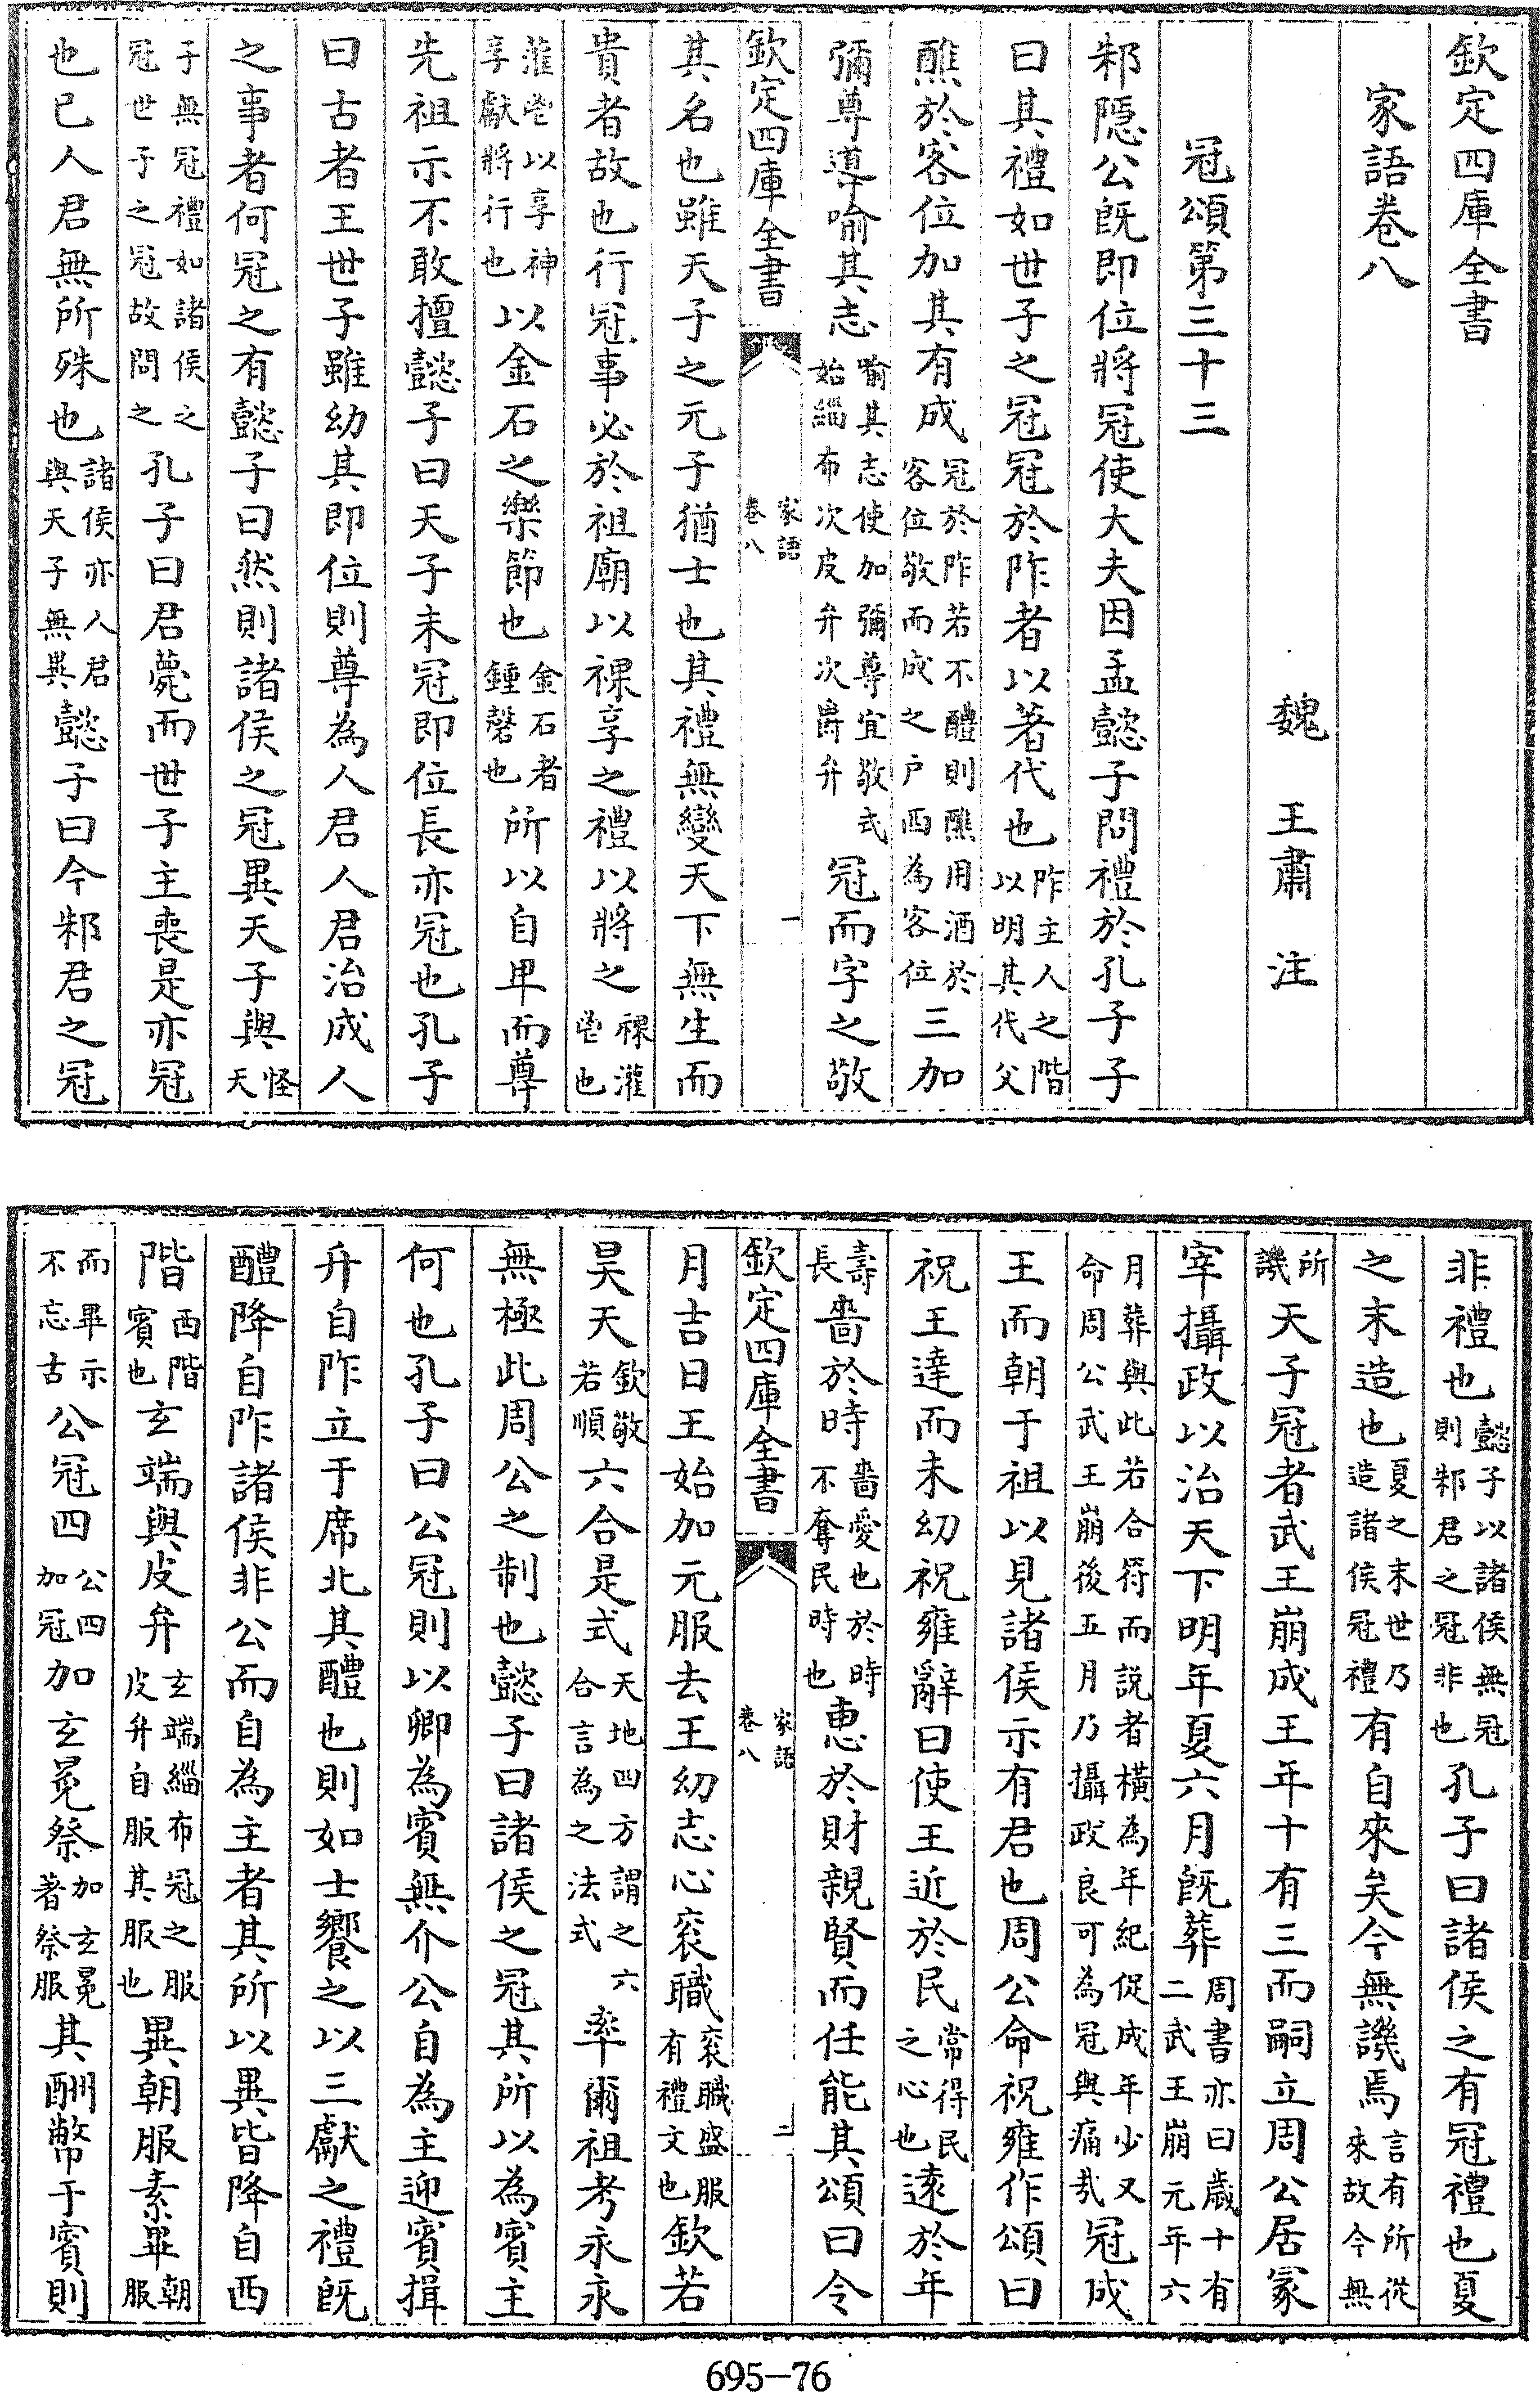 欽定四庫全書
家語卷八
魏 王肅 注
冠頌第三十三
邾隠公既即位將冠使大夫因孟懿子問禮於孔子子
曰其禮如世子之冠冠於阼者以著代也阼主人之階以明其代父
醮於客位加其有成冠於阼若不醴則醮用酒於客位敬而成之户西為客位三加
彌尊導喻其志喻其志使加彌尊宜敬式始緇布次皮弁次爵弁冠而字之敬
欽定四庫全書 家語卷八 一
其名也雖天子之元子猶士也其禮無變天下無生而
貴者故也行冠事必於祖廟以祼享之禮以將之祼灌鬯也
灌鬯以享神享獻將行也以金石之樂節也金石者鍾磬也所以自卑而尊
先祖示不敢擅懿子曰天子未冠即位長亦冠也孔子
曰古者王世子雖幼其即位則尊為人君人君治成人
之事者何冠之有懿子曰然則諸侯之冠異天子與怪天
子無冠禮如諸侯之冠世子之冠故問之孔子曰君薨而世子主喪是亦冠
也已人君無所殊也諸侯亦人君與天子無異懿子曰今邾君之冠
非禮也懿子以諸侯無冠則邾君之冠非也孔子曰諸侯之有冠禮也夏
之末造也夏之末世乃造諸侯冠禮有自來矣今無譏焉言有所從來故今無
所譏天子冠者武王崩成王年十有三而嗣立周公居冡
宰攝政以治天下明年夏六月既葬周書亦曰歲十有二武王崩元年六
月葬與此若合符而説者横為年紀促成年少又命周公武王崩後五月乃攝政良可為冠與痛哉冠成
王而朝于祖以見諸侯示有君也周公命祝雍作頌曰
祝王達而未幼祝雍辭曰使王近於民常得民之心也遠於年
壽長嗇於時嗇愛也於時不奪民時也惠於財親賢而任能其頌曰令
欽定四庫全書 家語卷八 二
月吉日王始加元服去王幼志心衮職衮職盛服有禮文也欽若
昊天欽敬若順六合是式天地四方謂之六合言為之法式率爾祖考永永
無極此周公之制也懿子曰諸侯之冠其所以為賓主
何也孔子曰公冠則以卿為賓無介公自為主迎賓揖
升自阼立于席北其醴也則如士饗之以三獻之禮既
醴降自阼諸侯非公而自為主者其所以異皆降自西
階西階賓也玄端與皮弁玄端緇布冠之服皮弁自服其服也異朝服素畢朝服
而畢示不忘古公冠四公四加冠加玄冕祭加玄冕著祭服其酬幣于賓則
695-76